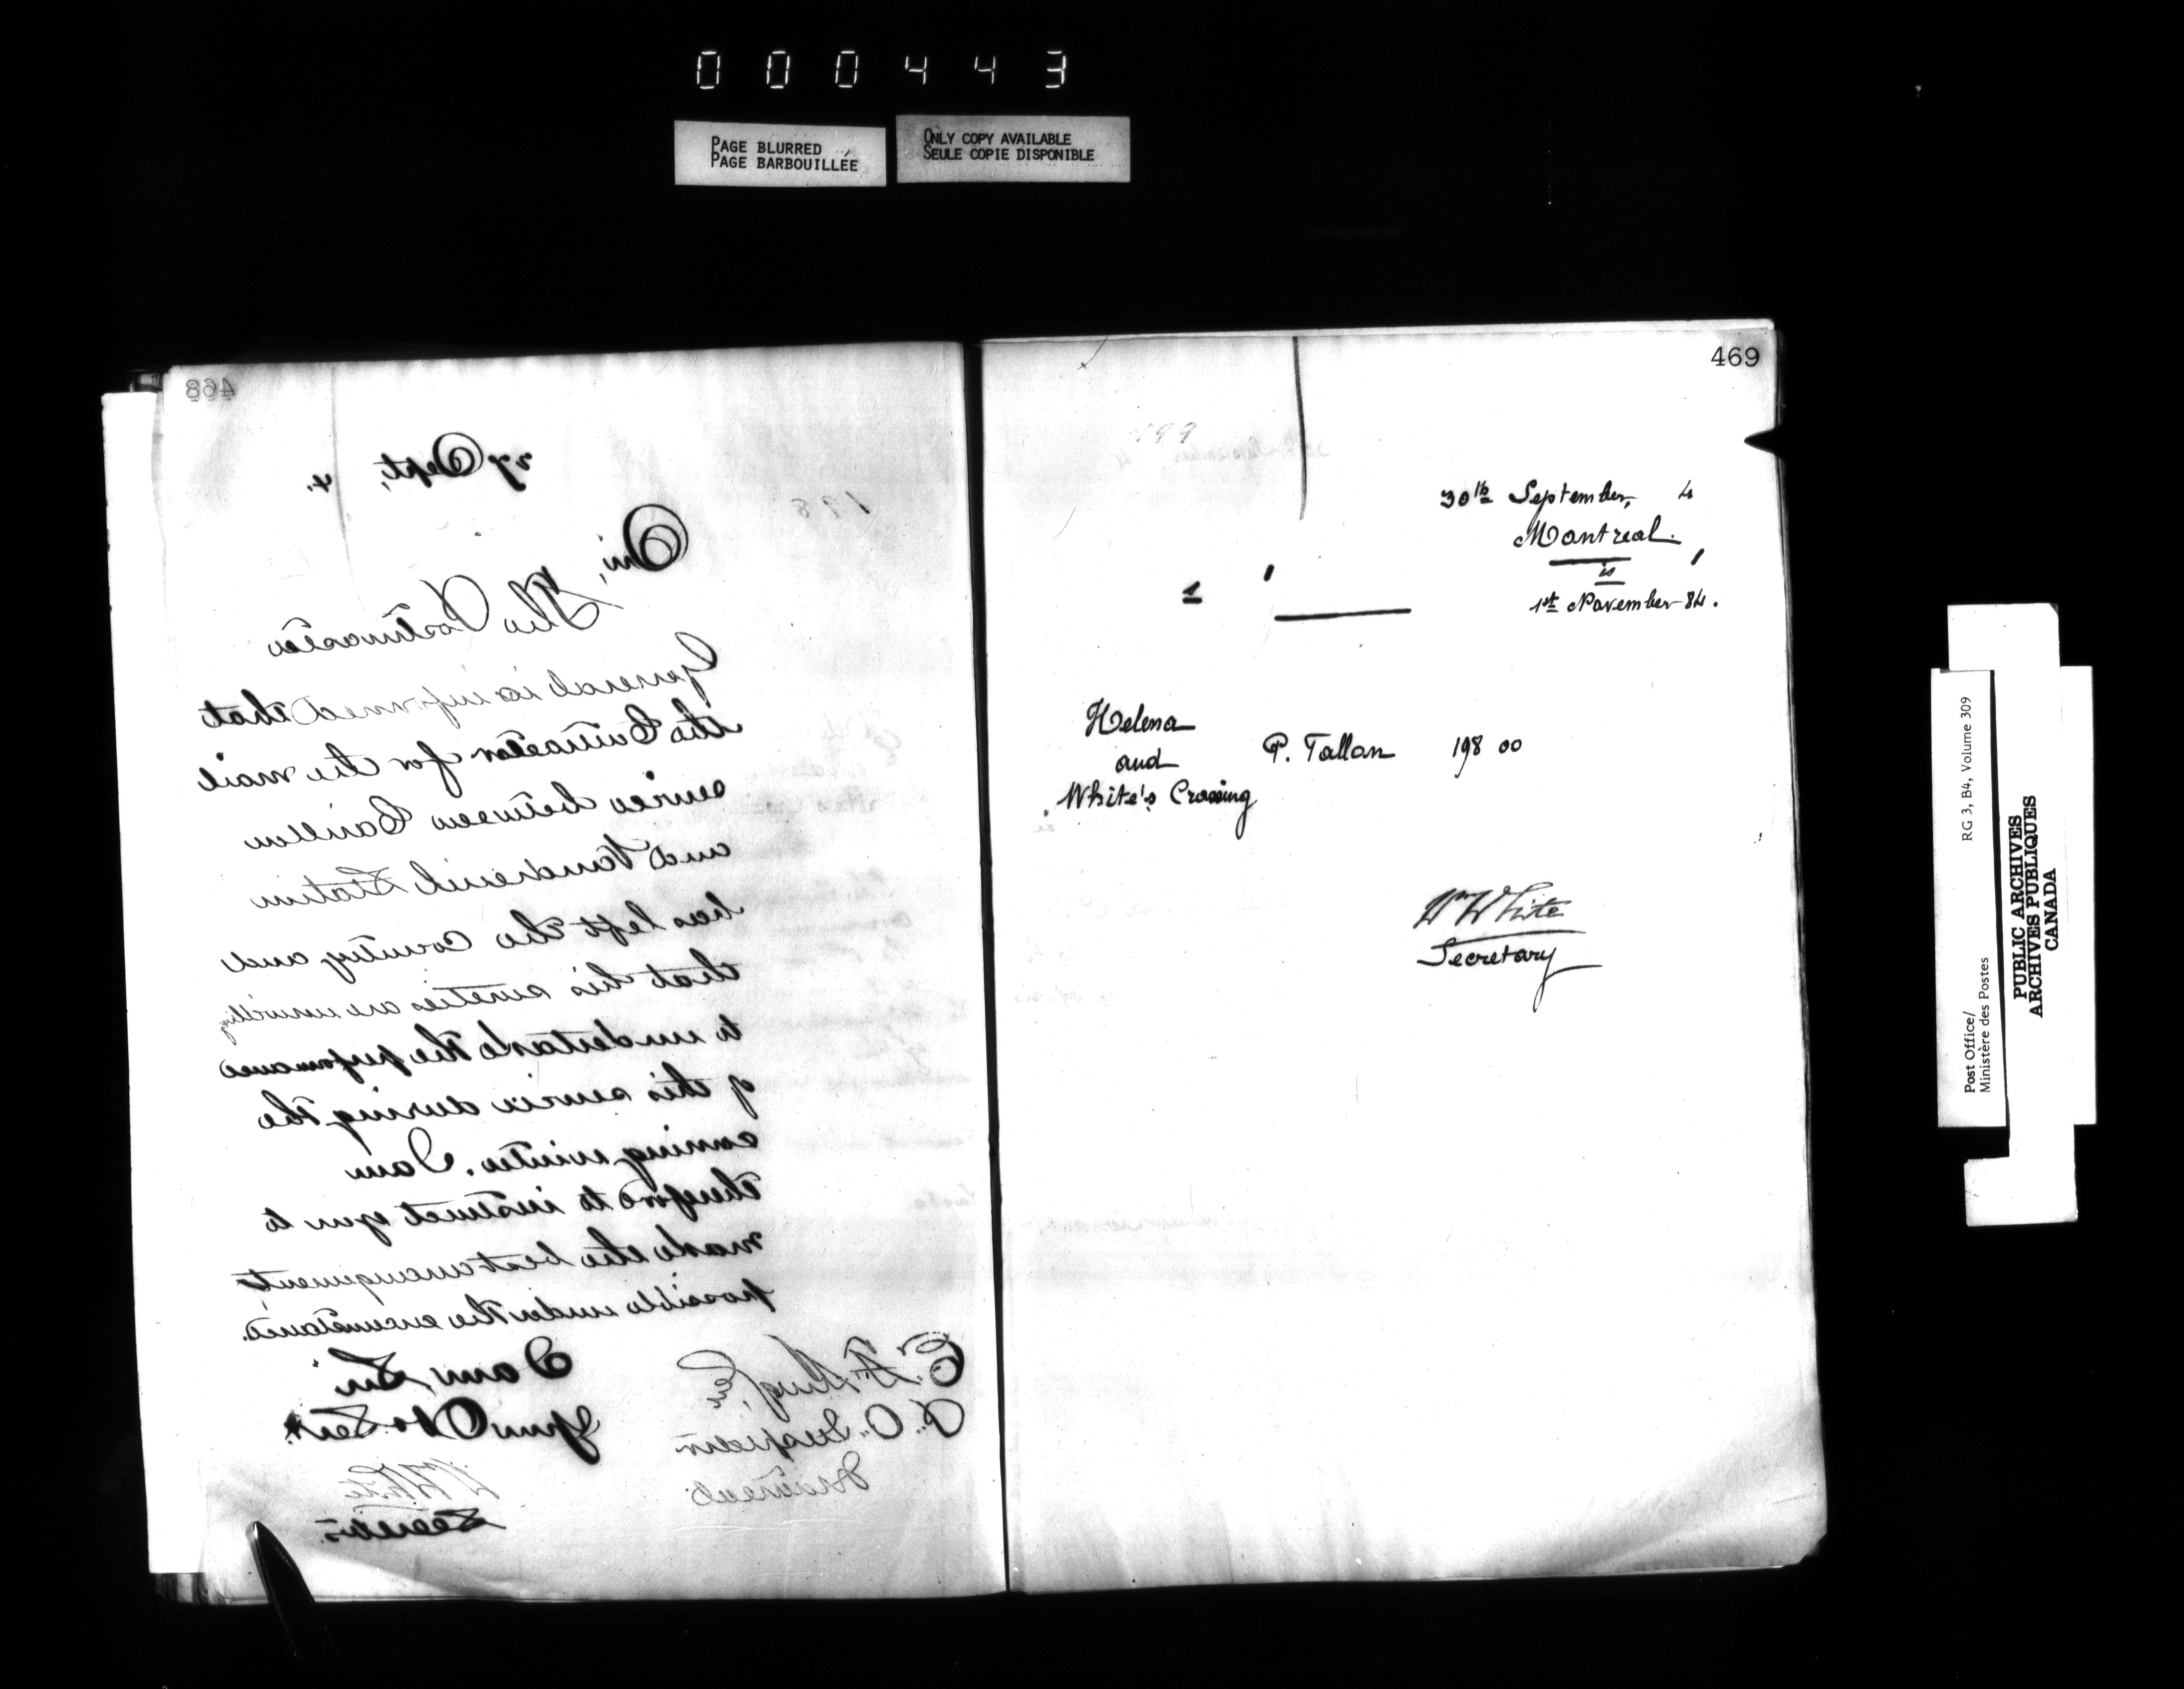 000443
PAGE BLURRED
PAGE BARBOUILLÉE
ONLY COPY AVAILABLE
SEULE COPIE DISPONIBLE
468
198
27 Sept, 4.
Sir,
The Postmaster
General is informed that
the Contractor for the mail
service between Carillon
and Vaudreuil Station
has left the Country and
that his sureties are unwilling
to undertake the performance
of this service during the
coming winter. I am
therefore to instruct you to
make the best arrangement
possible under the circumstances.
I am, Sir
Your Ob. Servt.
Wm White
Secretary
E. F. King, Esq
P. O. Inspector
Montreal
469
199
30th September, 4
Montreal.
is
1st November 84.
Helena
and
White's Crossing
P. Tallon 198 00
Wm White
Secretary
Post Office/
Ministère des Postes
RG 3, B4, Volume 309
PUBLIC ARCHIVES
ARCHIVES PUBLIQUES
CANADA